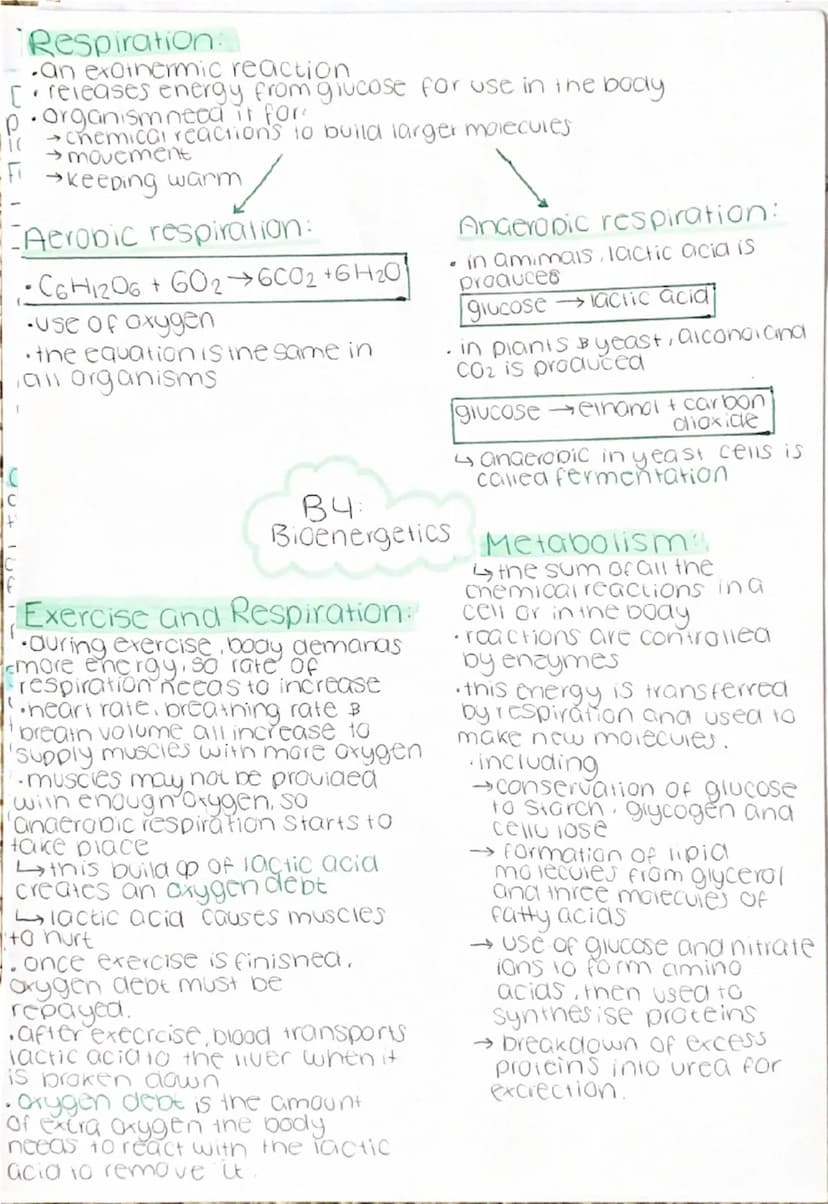 Respiration:
·an exothermic reaction
·releases energy from glucose for use in the body
·organism need it for:
→chemical reactions to build larger molecules
→movement
→keeping warm
Aerobic respiration:
·C6H12O6 + 6O2 →6CO2 +6H2O
·use of oxygen
·the equation is the same in
all organisms
Anaerobic respiration:
·in amimals, lactic acid is
produces
glucose → lactic acid
·in plants & yeast, alcohol and
CO2 is produced
glucose → ethanol + carbon
dioxide
↳ anaerobic in yeast cells is
called fermentation
B4:
Bioenergetics
Exercise and Respiration:
·during exercise, body demands
more energy, so rate of
respiration needs to increase
·heart rate, breathing rate &
breath volume all increase to
supply muscles with more oxygen
·muscles may not be provided
with enough oxygen, so
anaerobic respiration starts to
take place
↳this build up of lactic acid
creates an oxygen debt
↳lactic acid causes muscles
to hurt
·once exercise is finished,
oxygen debt must be
repayed.
·after exercise, blood transports
lactic acid to the liver when it
is broken down
·oxygen debt is the amount
of extra oxygen the body
needs to react with the lactic
acid to remove it.
Metabolism:
↳the sum of all the
chemical reactions in a
cell or in the body
·reactions are controlled
by enzymes
·this energy is transferred
by respiration and used to
make new molecules.
·including
→conservation of glucose
to starch, glycogen and
cellulose
→ formation of lipid
molecules from glycerol
and three molecules of
fatty acids
→ use of glucose and nitrate
ions to form amino
acids, then used to
synthesise proteins
→ breakdown of excess
proteins into urea for
excrection.